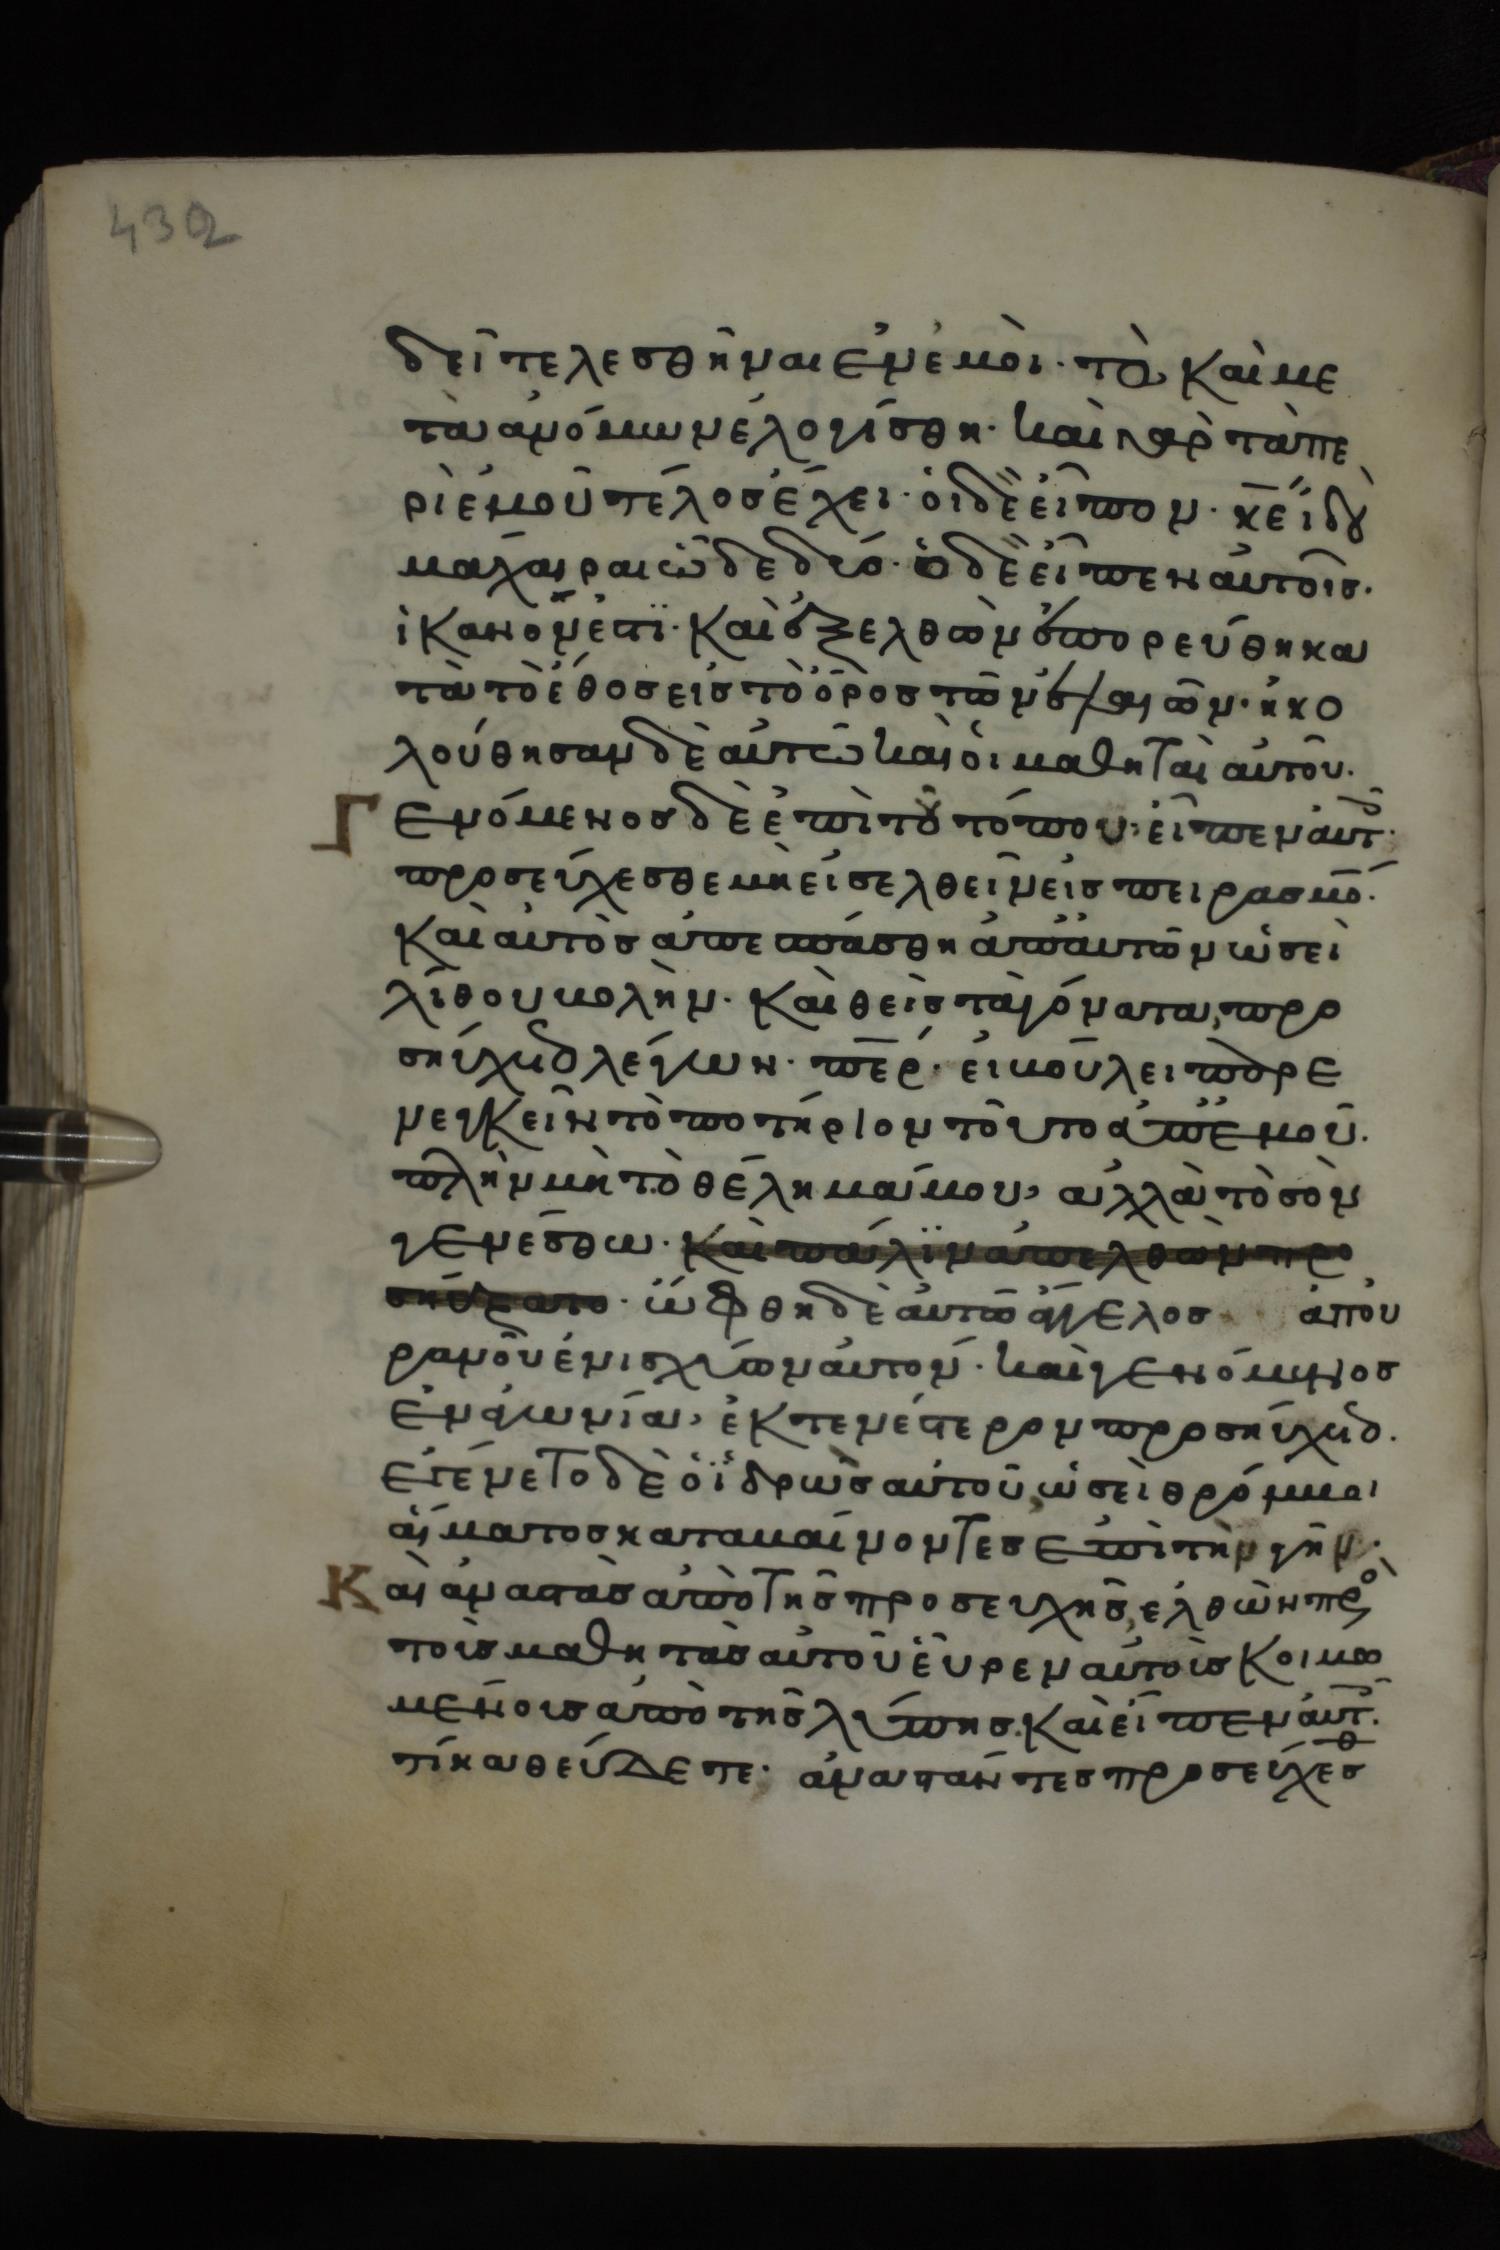 432
δεῖ τελεσθῆναι ἐν ἐμοὶ· τὸ, καὶ με
τὰ ἀνόμων ἐλογίσθη· καὶ γὰρ τὰ πε
ρὶ ἐμοῦ τέλος ἔχει· οἱ δὲ εἶπον· κε ἰδοὺ
μάχαιραι ὧδε δύο· ὁ δὲ εἶπεν αὐτοῖς·
ἱκανόν ἐστϊ· καὶ ἐξελθὼν ἐπορεύθη κα
τὰ τὸ ἔθος εἰς τὸ ὄρος τῶν ἐλαιῶν· ἠκο
λούθησαν δὲ αὐτῶ καὶ οἱ μαθηταὶ αὐτοῦ·
Γενόμενος δὲ ἐπὶ τοῦ τόπου· εἶπεν αὐτ
προσεύχεσθε μὴ εἰσελθεῖν εἰς πειρασμό·
καὶ αὐτὸς ἀπεσπάσθη ἀπ αὐτῶν ὡσεὶ
λίθου βολὴν· καὶ θεὶς τὰ γόνατα, προ
σηύχετο λέγων· περ· εἰ βούλει παρε
νεγκεῖν τὸ ποτήριον τοῦτο ἀπ ἐμοῦ·
πλὴν μὴ τὸ θέλημά μου, ἀλλὰ τὸ σὸν
γενέσθω· καὶ πάλϊν ἀπελθὼν προ
σηύξατο· ὤφθη δὲ αὐτῶ ἄγγελος ἀπ οὐ
ρανοῦ ἐνισχύων αὐτόν· καὶ γενόμενος
ἐν ἀγωνία, ἐκτενέστερον προσηύχετο·
ἐγένετο δὲ ὁ ἱδρὼς αὐτοῦ, ὡσεὶ θρόμβοι
αἵματος καταβαίνοντες ἐπὶ τὴν γῆν·
Καὶ ἀναστὰς ἀπὸ τῆς προσευχῆς, ἐλθὼν πρὸ
τοὺς μαθητὰς αὐτοῦ εὗρεν αὐτοὺς κοιμω
μένους ἀπὸ τῆς λύπης· καὶ εἶπεν αὐτ·
τί καθεύδετε· ἀναστάντες προσεύχεσθ